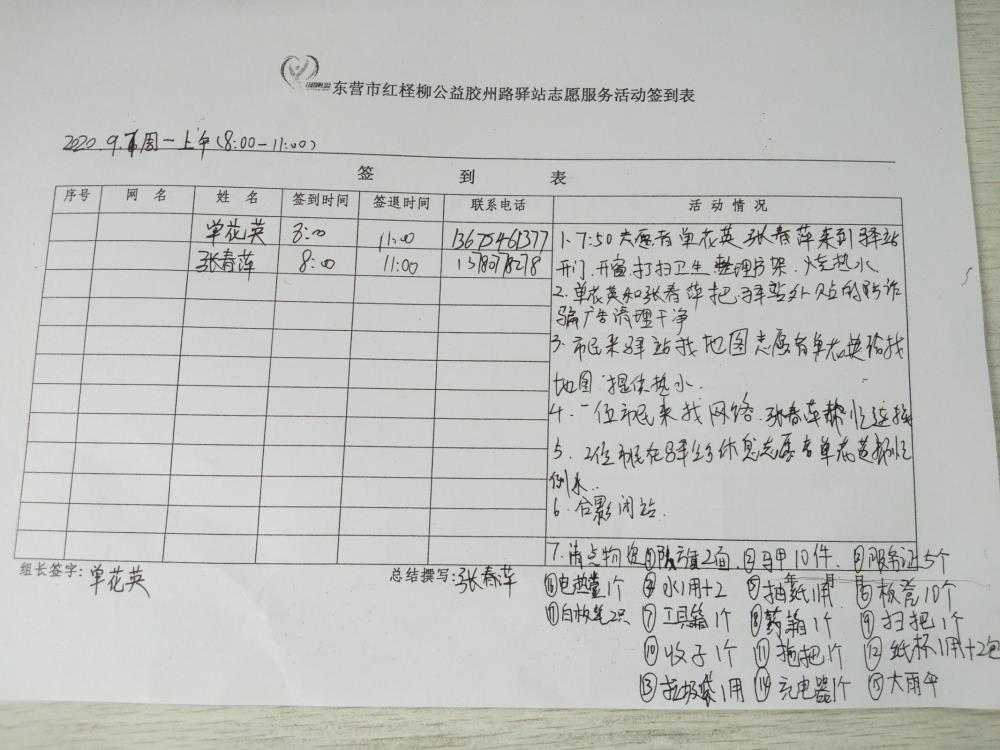 东营市红柽柳公益胶州路驿站志愿服务活动签到表
2020.9. 周一上午(8:00-11:00)
签 到 表
序号 网 名 姓 名 签到时间 签退时间 联系电话 活 动 情 况
单花英 8:00 11:00 13675461377
张春萍 8:00 11:00
1.7:50志愿者单花英张春萍来到驿站
开门.开窗.打扫卫生整理书架.烧热水.
2.单花英和张春萍把驿站外 贴的防诈
骗广告清理干净
3.市民来驿站找地图志愿者单花英给找
地图 提供热水.
4.一位市民来找网络.张春萍帮忙连接
5.2位市民在驿站休息志愿者单花英帮忙
倒水..
6.合影闭站.
7.清点物资①队旗2面.②马甲10件.③服务证5个
组长签字:单花英 总结撰写:张春萍 年 月
⑯电热壶1个 ④水1用+2 ⑤抽纸1用 ⑥板凳10个
⑰白板笔2只 ⑦工具箱1个 ⑧药箱1个 ⑨扫把1个
⑩收子1个 ⑪拖把1个 ⑫纸杯1用+2包
⑬垃圾袋1用 ⑭充电器1个 ⑮大雨伞